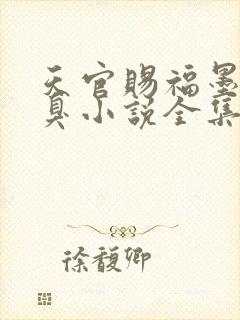 天官赐福墨
臭小说全集
徐馥卿